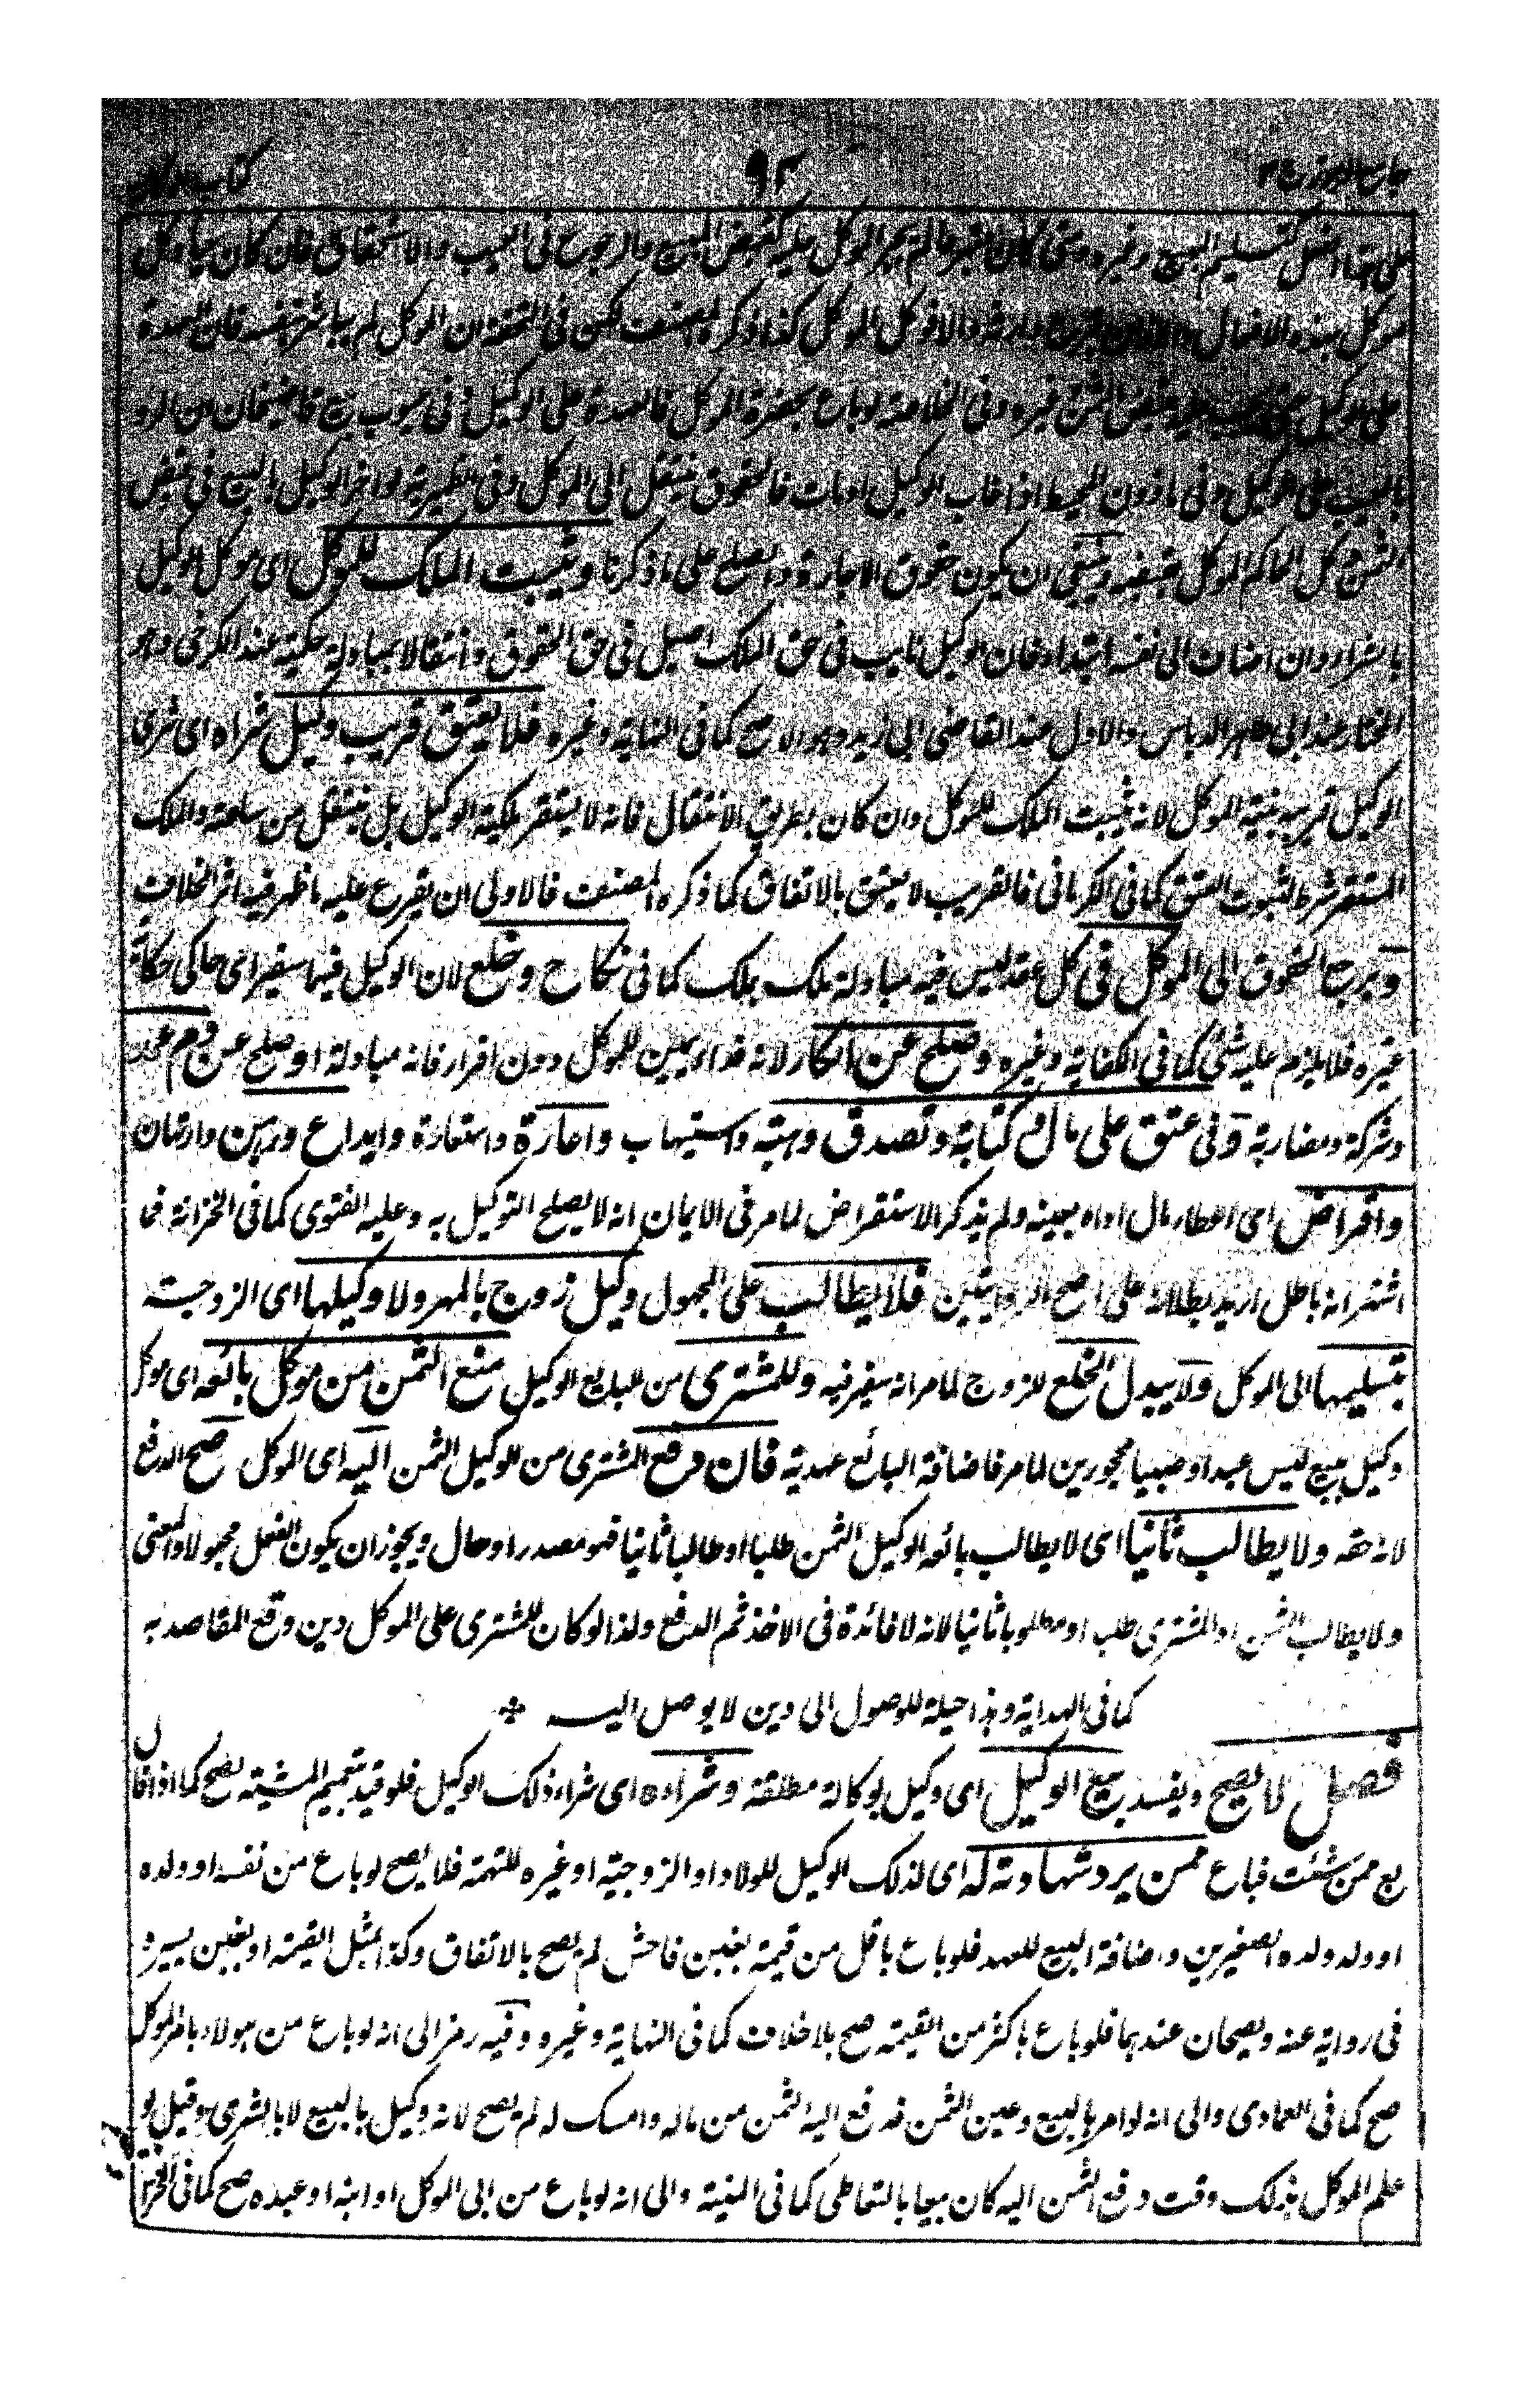 ٩٢
على هذا الفعل كتسليم المبيع وغيره ومتى كان لم يجبر الموكل عليه كقبض المبيع والرجوع فى العيب والاستحقاق فان كان حيا وكل
موكل بهذه الافعال وارثه والا وكل الموكل كذا ذكره المصنف لكن فى التحفة ان الموكل لم يباشر بنفسه فان العهدة
على الوكيل قبض الثمن وغيره وفى الخلاصة لو باع بحضرة الموكل فالعهدة على الوكيل وفى عيوب بيع قاضيخان ان الرد
بالعيب على الوكيل وفى ماذون المحيط اذا غاب الوكيل او مات فالحقوق ينتقل الى الموكل وفى الظهيرية لو اخر الوكيل بالبيع فى قبض
الثمن وكل الحاكم الموكل بقبضه وينبغى ان يكون حقوق الاجارة والصلح على ما ذكرنا ويثبت الملك للموكل اى موكل الوكيل
بالشراء وان اضاف الى نفسه ابتداء فان الوكيل نايب فى حق الملك اصيل فى حق الحقوق وانتقالا بمبادلة حكمية عند الكرخى وهو
المختار عند ابى طاهر الدباس والاول عند القاضى ابى زيد وهو الاصح كما فى النهاية وغيره فلا يعتق قريب وكيل شراه اى شرى
الوكيل قريبه بنية الموكل لانه يثبت الملك للموكل وان كان بطريق الانتقال فانه لا يستقر ملكية الوكيل بل ينتقل من ساعته والملك
المستقر شرط لثبوت العتق كما فى الكرمانى فالقريب لا يعتق بالاتفاق كما ذكره المصنف فالاولى ان يفرع عليه ما ظهر فيه اثر الخلاف
ويرجع الحقوق الى الموكل فى كل عقد ليس فيه مبادلة ملك بملك كما فى نكاح وخلع لان الوكيل فيها سفير اى حاكى حكاية
غيره فلا يلزم عليه شئ كما فى الكفاية وغيره وصلح عن انكار لانه فداء يمين للموكل دون اقرار فانه مبادلة او صلح عن دم عمد
وشركة ومضاربة وفى عتق على مال وكتابة وتصدق وهبة واستيهاب واعارة واستعارة وايداع ورهن وارتهان
واقراض اى اعطاء مال اداه بعينه ولم يذكر الاستقراض لما مر فى الايمان انه لا يصلح التوكيل به وعليه الفتوى كما فى الخزانة فما
اشتهر انه باطل اريد بطلانه على اصح الروايتين فلا يطالب على المجهول وكيل زوج بالمهر ولا وكيلها اى الزوجة
بتسليمها الى الموكل ولا ببدل الخلع للزوج لما مر انه سفير فيه وللمشترى من البايع الوكيل منع الثمن من موكل بائعه اى موكل
وكيل ببيع ليس عبدا او صبيا محجورين لما مر فاضافة البائع عهدية فان دفع المشترى من الوكيل الثمن اليه اى الموكل صح الدفع
لانه حقه ولا يطالب ثانيا اى لا يطالب بائعه الوكيل الثمن طلبا او طالبا ثانيا فهو مصدر او حال ويجوز ان يكون الفعل مجهولا والمعنى
ولا يطالب الثمن او المشترى طلبا او مطلوبا ثانيا لانه لا فائدة فى الاخذ ثم الدفع ولذا لو كان للمشترى على الموكل دين وقع المقاصد به
كما فى الهداية وهذا حيلة للوصول الى دين لا يوصل اليه
فصل لا يصح ويفسد بيع الوكيل اى وكيل بوكالة مطلقة وشراءه اى شراء ذلك الوكيل فلو قيد بتعميم المشية يصح كما اذا قال
بع ممن شئت فباع ممن يرد شهادته له اى لذلك الوكيل للولاد او الزوجية او غيره للتهمة فلا يصح لو باع من نفسه او ولده
او ولد ولده الصغيرين واضافة البيع للعهد فلو باع باقل من قيمة بغبن فاحش لم يصح بالاتفاق وكذا بمثل القيمة او بغبن يسير و
فى رواية عنه ويصحان عندهما فلو باع باكثر من القيمة صح بلا خلاف كما فى النهاية وغيره وفيه رمز الى انه لو باع من هولاء بامر الموكل
صح كما فى العمادى والى انه لو امر بالبيع وعين الثمن فدفع اليه الثمن من ماله وامسك له لم يصح لانه وكيل بالبيع لا بالشرى وقيل لو
علم الموكل بذلك وقت دفع الثمن اليه كان بيعا بالتعاطى كما فى المنية والى انه لو باع من ابى الموكل او ابنه او عبده صح كما فى الخزانة